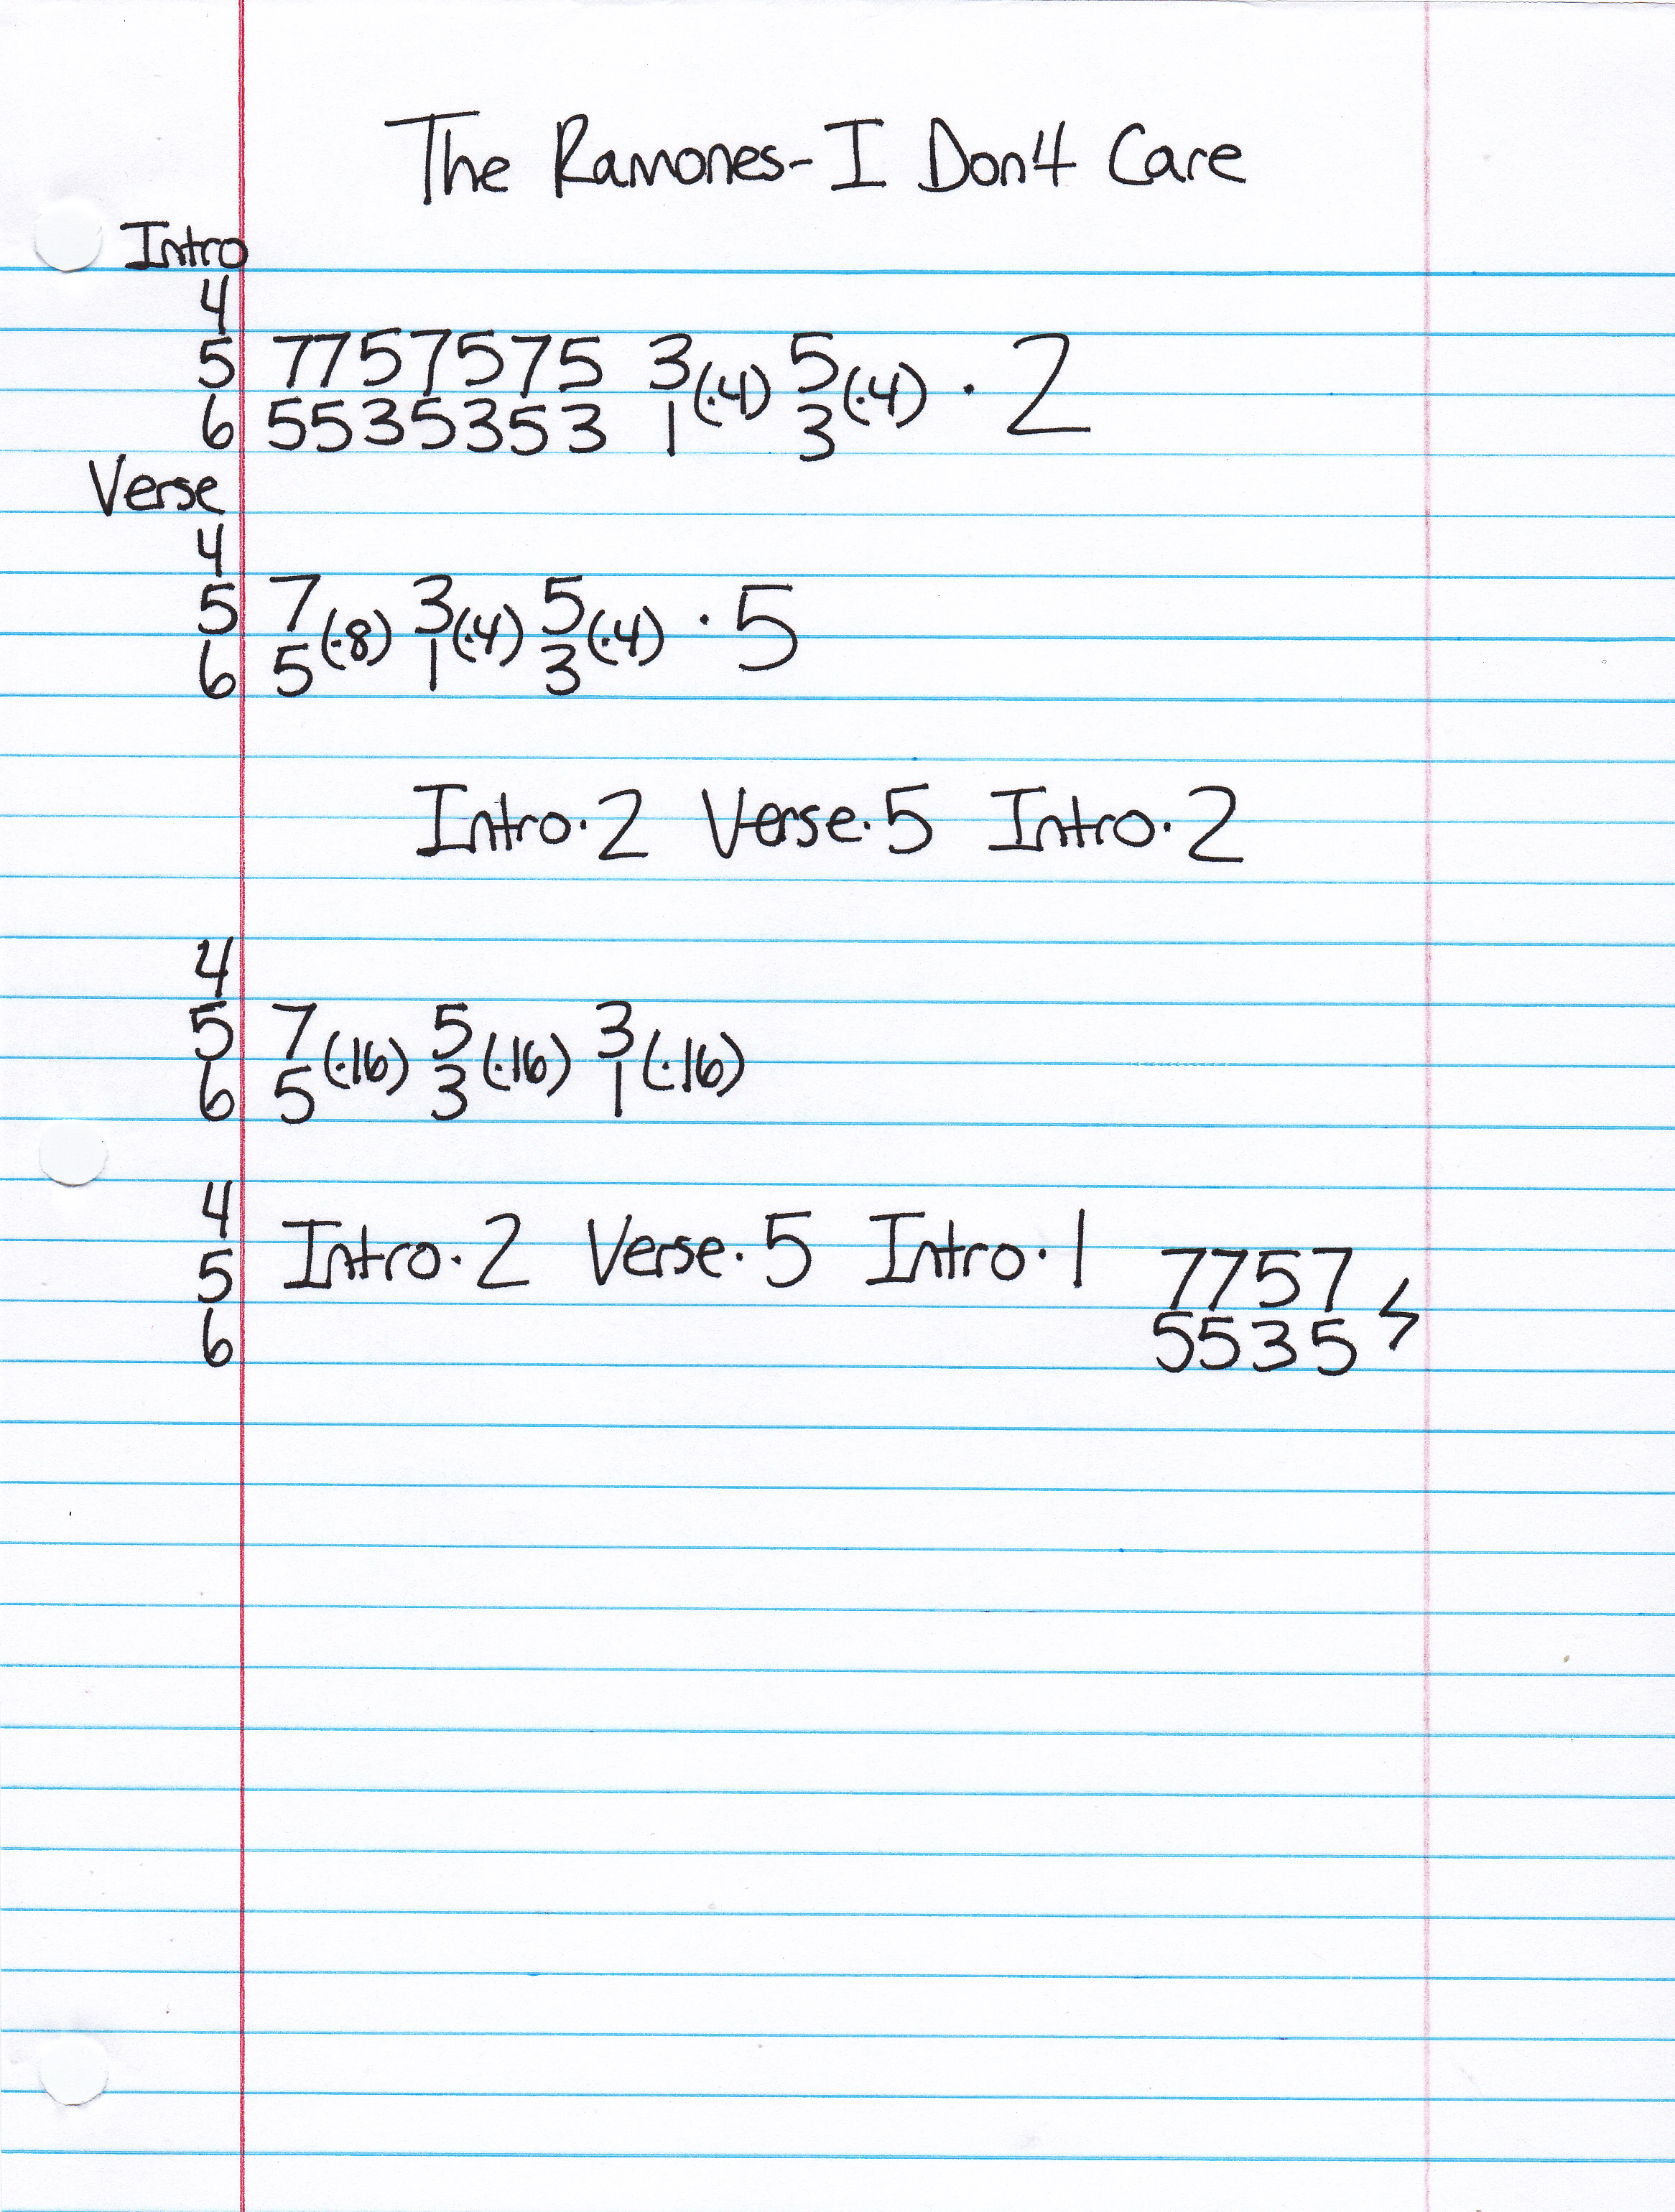 The Ramones- I Don't Care
Intro
4
5 7757575 3(·4) 5(·4) · 2
6 5535353 1 3
Verse
4
5 7(·8) 3(·4) 5(·4) · 5
6 5 1 3
Intro·2 Verse·5 Intro·2
4
5 7(·16) 5(·16) 3(·16)
6 5 3 1
4
5 Intro·2 Verse·5 Intro·1 7757
6 5535